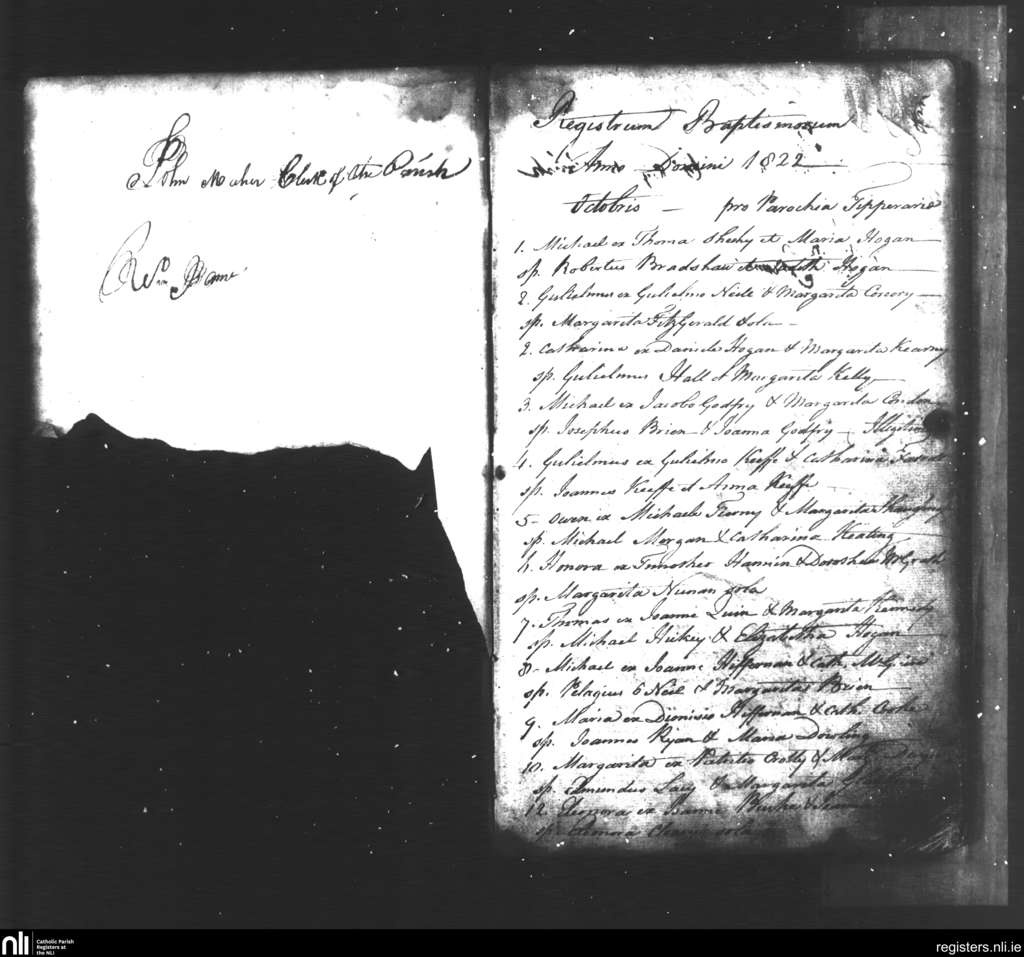 John Meher Clerk of the Parish
Wm
Registrum Baptismorum
Anno Domini 1822
Octobris — pro Parochia Tipperarie
1. Michael ex Thoma Sheehy et Maria Hogan
sp. Robertus Bradshaw et Hogan
2. Gulielmus ex Gulielmo Neile & Margarita Conory
sp. Margarita FitzGerald Sola
2. Catharina ex Daniele Hogan & Margarita Kearny
sp. Gulielmus Hall et Margarita Kelly
3. Michael ex Jacobo Godfry & Margarita Condon
sp. Josephus Brien & Joanna Godfry —
4. Gulielmus ex Gulielmo Keeffe & Catharina
sp. Joannes Keeffe et Anna Keeffe
5 — Owen ex Michaele Tierny & Margarita
sp. Michael Morgan & Catharina Keating
Honora ex Timotheo Hannin & Dorothea McGrath
sp. Margarita Nunan sola
7. Thomas ex Joanne Quin & Margarita Kennedy
sp. Michael Hickey & Elizabetha Hogan
8 — Michael ex Joanne Heffernan & Cath.
sp. Pelagius O Neil et Margarita Brien
9. Maria ex Dionisio Heffernan & Cath.
sp. Joannes Ryan & Maria Dowling
10. Margarita ex Patritio Crotty &
sp. Edmundus Lacy & Margarita
12. Eleonora ex Joanne
sp. Eleonora sola
nli
Catholic Parish
Registers at
the NLI
registers.nli.ie